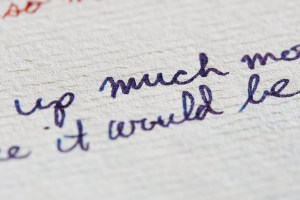 so m
up much mo
e it would be